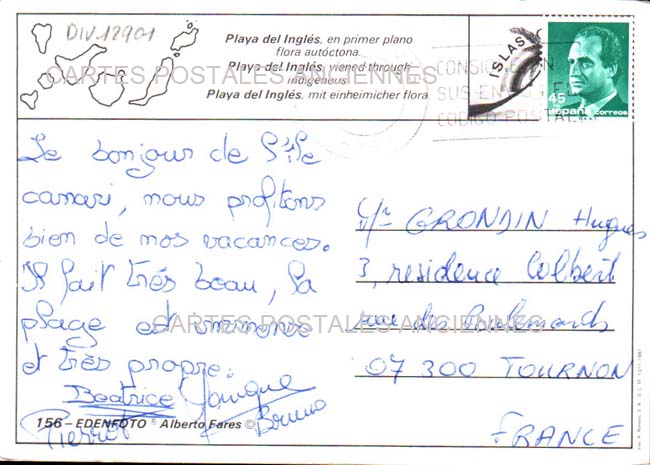 DIV.12901
Playa del Inglés, en primer plano
flora autóctona.
Playa del Inglés, viened through
indigenous.
Playa del Inglés, mit einheimicher flora.
CARTES POSTALES ANCIENNES
ISLAS
CONSIGNE EN
SUS ENVIOS EL
CODIGO POSTAL
45
España correos
Le bonjour de l'île
canari, nous profitons
bien de nos vacances.
Il fait très beau, la
plage est immense
et très propre.
Beatrice
Bruno
Pierrot
GRONDIN Hugues
3, residence Colbert
rue des
07300 TOURNON
FRANCE
CARTES POSTALES ANCIENNES
156 - EDENFOTO ® Alberto Fares ©